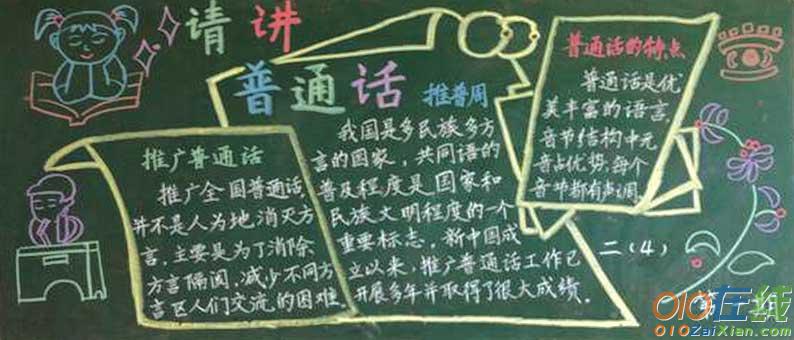 请讲
普通话 推普周
推广普通话
推广全国普通话,
并不是人为地消灭方
言,主要是为了消除
方言隔阂,减少不同方
言区人们交流的困难.
我国是多民族多方
言的国家,共同语的
普及程度是国家和
民族文明程度的一个
重要标志,新中国成
立以来,推广普通话工作已
开展多年并取得了很大成绩.
普通话的特点
普通话是优
美丰富的语言,
音节结构中元
音占优势,每个
音节都有声调.
二(4)
第
010在线
010ZaiXian.com